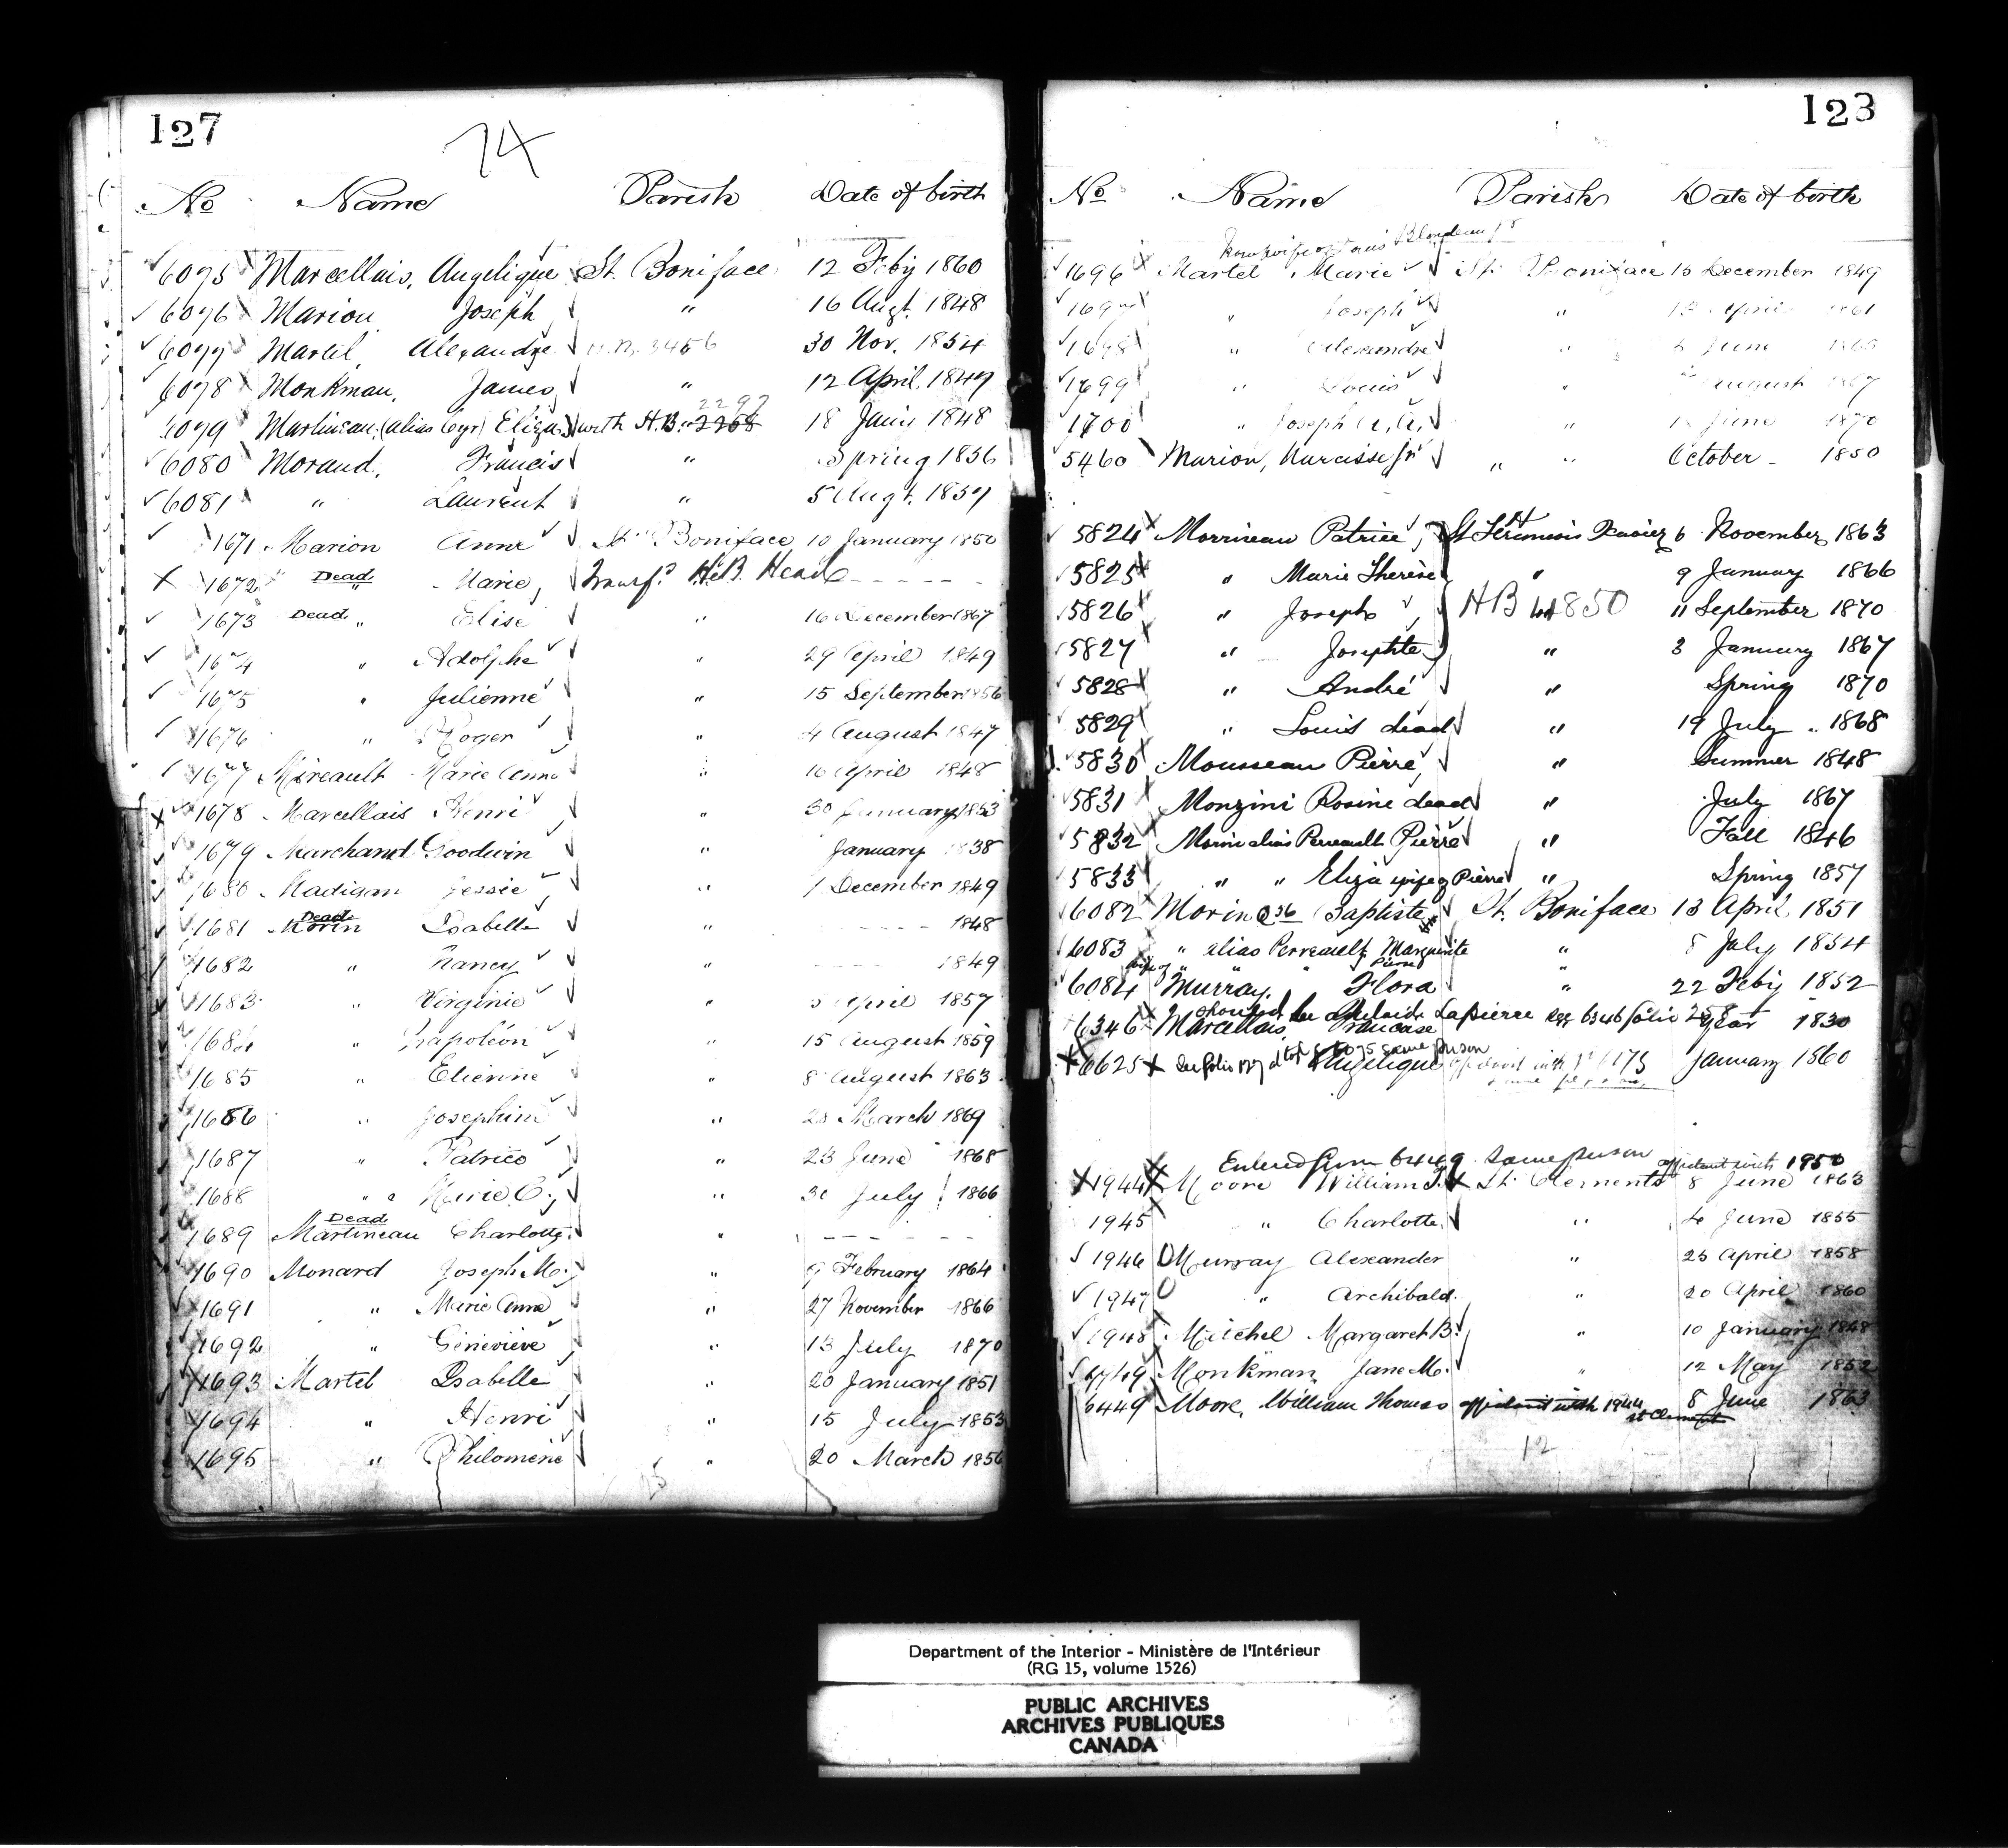 127
74
No Name Parish Date of birth
6075 Marcellais, Angelique St. Boniface 12 Feby 1860
6076 Marion Joseph " 16 Augt. 1848
6077 Martel, Alexandre H.B. 3456 30 Nov. 1854
6078 Monkman, James " 12 April 1849
2297
6079 Martineau, (alias Cyr) Eliza with H.B. 2268 18 1848
6080 Morand, Francis " Spring 1856
6081 " Laurent " 5 Augt. 1857
1671 Marion Anne St. Boniface 10 January 1850
1672 Dead " Marie, Transfd. H.B. Head
1673 Dead " Elise " 16 December 1867
1674 " Adolphe " 29 April 1849
1675 " Julienne " 15 September 1856
1676 " Roger " 4 August 1847
1677 Mireault Marie Anne " 10 April 1848
1678 Marcellais Henri " 30 January 1853
1679 Marchand Goodwin " January 1838
1680 Madigan Jessie " 1 December 1849
Dead
1681 Morin Isabelle " 1848
1682 " Nancy " 1849
1683 " Virginie " April 1857
1684 " Napoléon " 15 August 1859
1685 " Etienne " 8 August 1863
1686 " Josephine " 28 March 1869
1687 " Patrice " 23 June 1868
1688 " Marie C. " 30 July 1866
Dead
1689 Martineau Charlotte "
1690 Monard Joseph M. " 9 February 1864
1691 " Marie Anne " 27 November 1866
1692 " Géneviève " 13 July 1870
1693 Martel Isabelle " 20 January 1851
1694 " Henri " 15 July 1853
1695 " Philomène " 20 March 1856
123
No Name Parish Date of birth
now wife of Louis Blondeau Jr
1696 Martel Marie St. Boniface 15 December 1849
1697 " Joseph " April 1861
1698 " Alexandre " June
1699 " Louis " August 1867
1700 " Joseph A. A. " June 1870
5460 Marion, Narcisse Jr " " October 1850
5824 Morrineau Patrice, St François Xavier 6 November 1863
5825 " Marie Therèse " 9 January 1866
5826 " Joseph HB 4850 11 September 1870
5827 " Josephte " 3 January 1867
5828 " André " Spring 1870
5829 " Louis dead " 19 July 1868
5830 Mousseau Pierre, " Summer 1848
5831 Monzini Rosine dead " July 1867
5832 Morin alias Perreault Pierre " Fall 1846
5833 " " Eliza wife of Pierre " Spring 1857
6082 Morin Bte Baptiste St. Boniface 13 April 1851
6083 " alias Perreault Marguerite " 5 July 1854
wife of " " Pierre "
6084 Murray, Flora " 22 Feby 1852
should be Adelaide Lapierre see 6346 folio 258
6346 Marcellais, Francoise year 1830
6625 See folio 127 6075 same person Angelique affidavit with January 1860
Entered from 6449 same person affidavit with 1950
1944 Moore William T. St. Clements 8 June 1863
1945 " Charlotte " 4 June 1855
1946 Murray Alexander " 23 April 1858
1947 " Archibald " 20 April 1860
1948 Mitchel Margaret B. " 10 January 1848
Monkman Jane M. " 12 May 1852
6449 Moore, William Thomas affidavit with 1944 8 June 1863
St Clements
12
Department of the Interior - Ministère de l'Intérieur
(RG 15, volume 1526)
PUBLIC ARCHIVES
ARCHIVES PUBLIQUES
CANADA